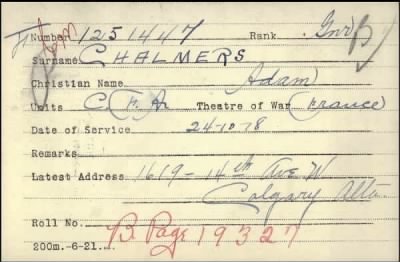 Number 1251447 Rank Gnr B
Surname CHALMERS
Christian Name Adam
Units C. F. A. Theatre of War France
Date of Service 24-10-18
Remarks
Latest Address 1619-14th Ave W
Calgary Alta.
Roll No.
B. Page 19327
200m.-6-21.